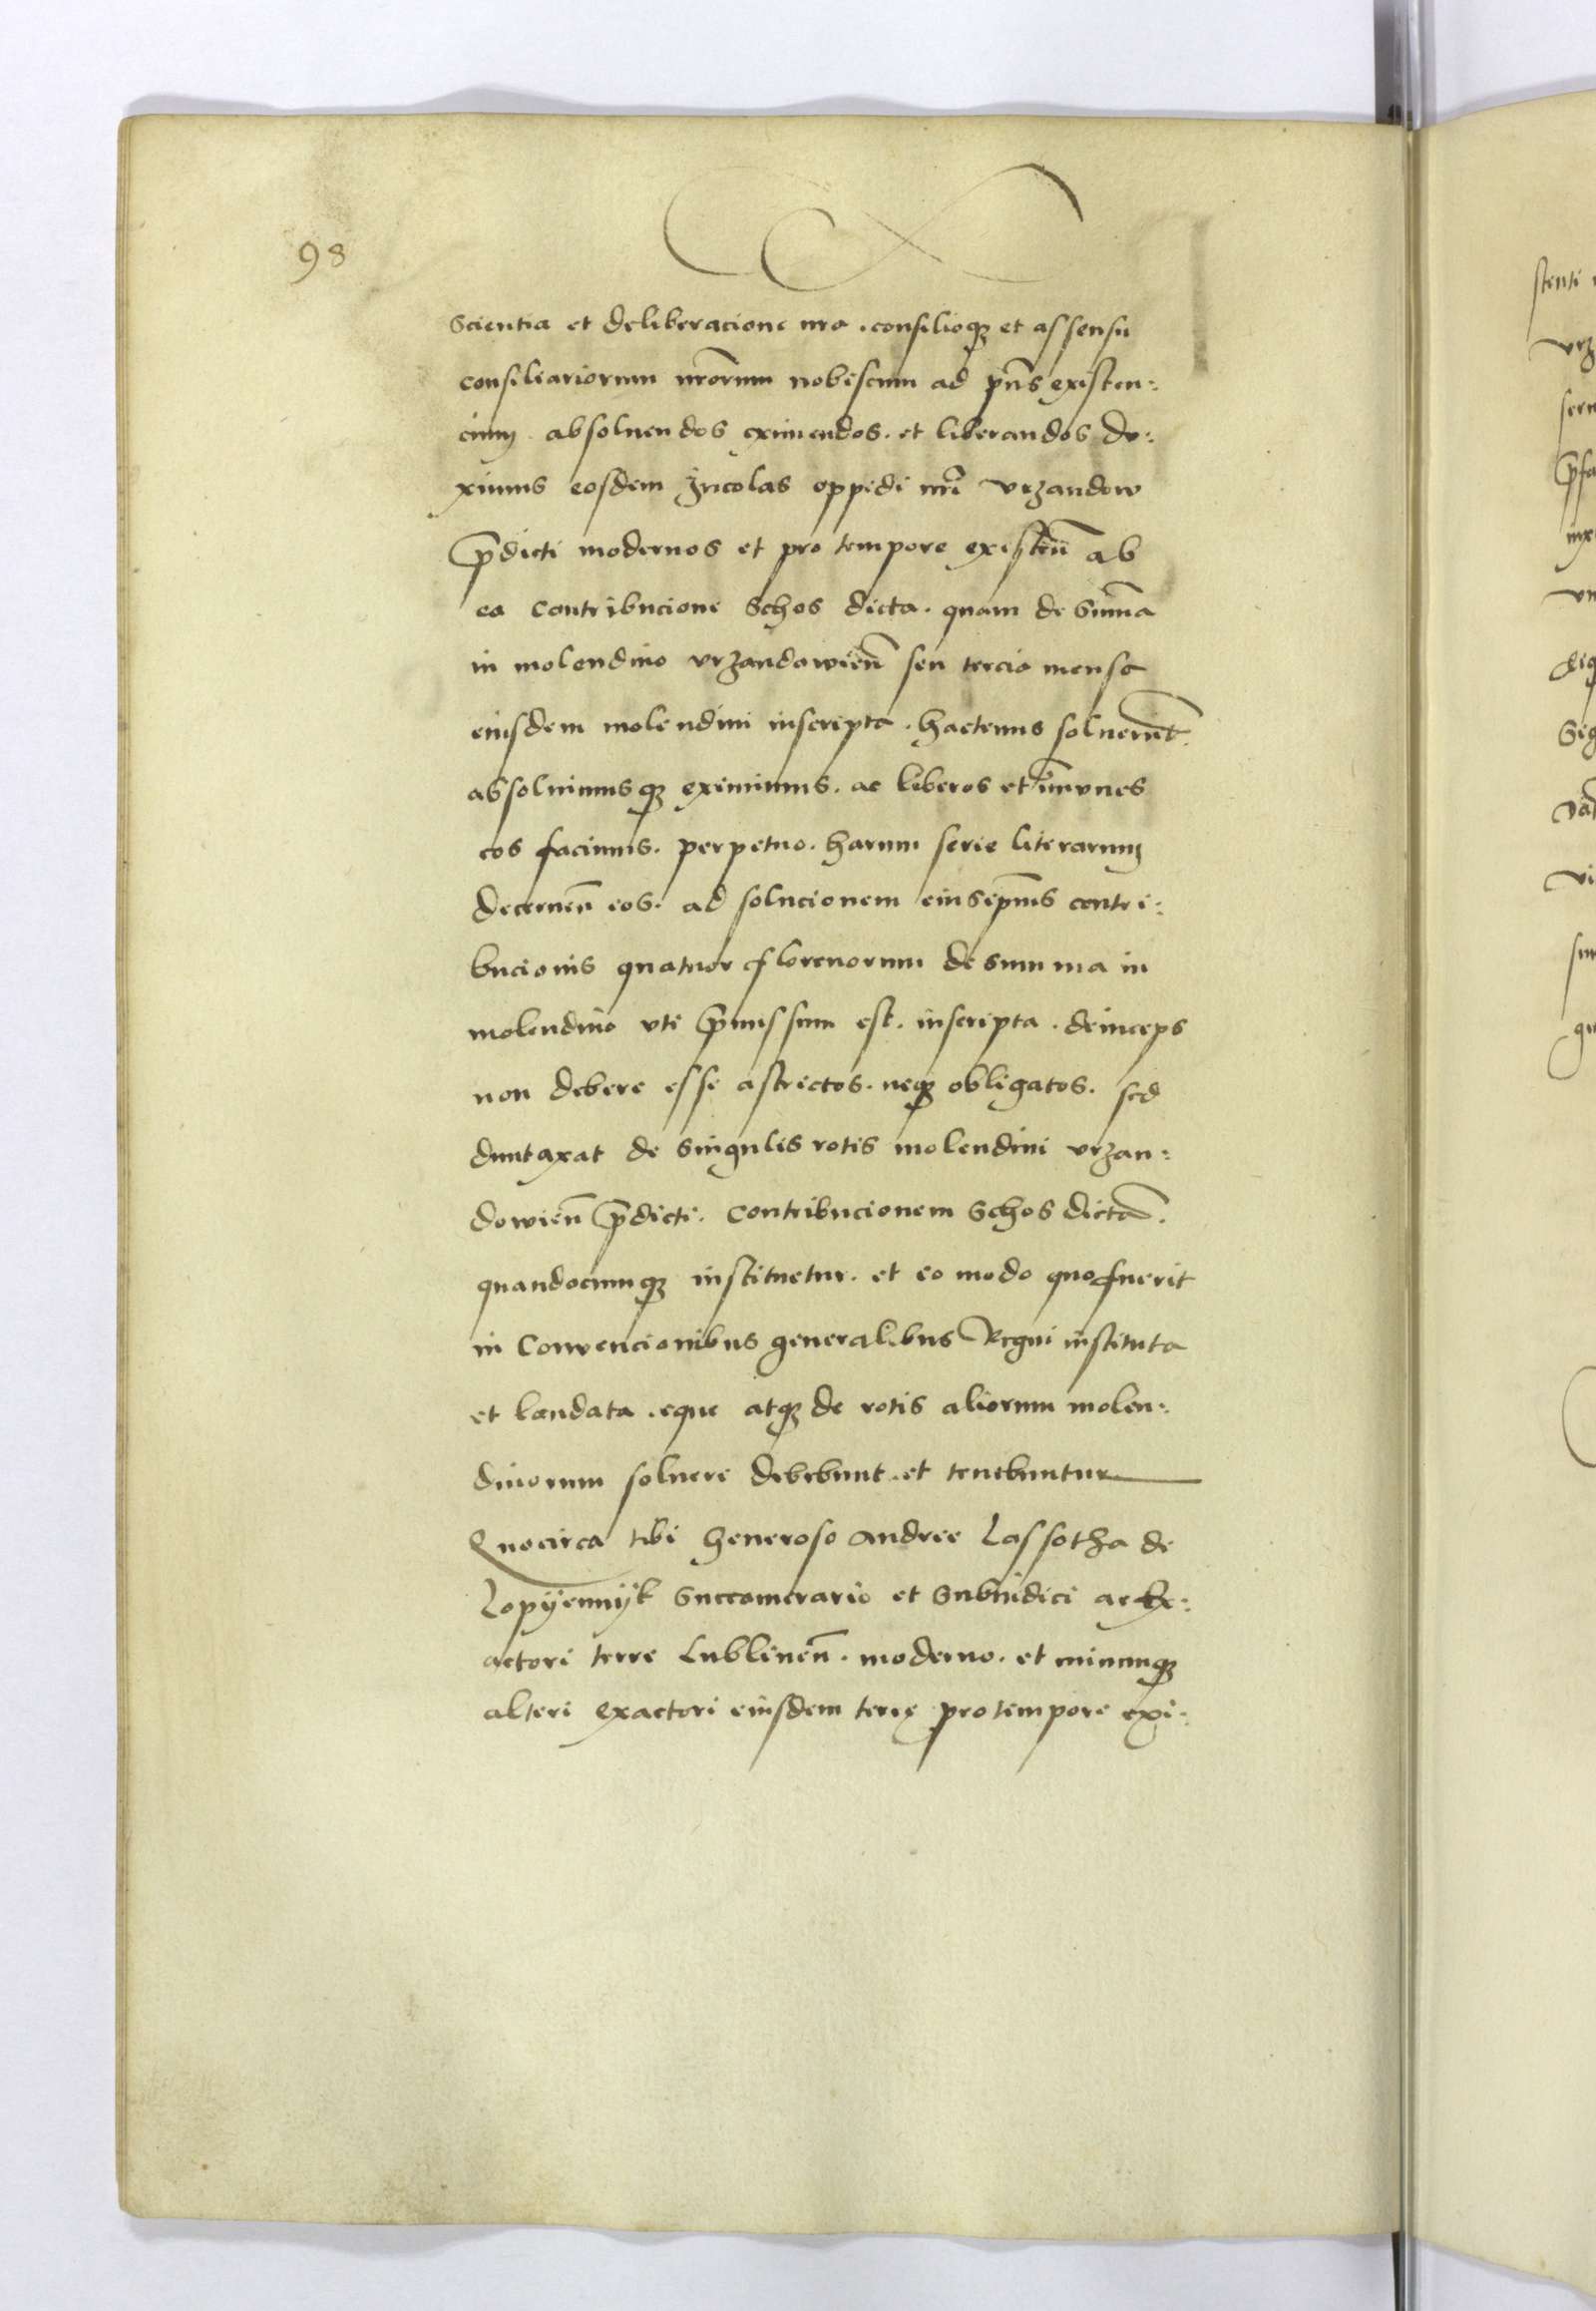 98
scientia et deliberacione nra. consilioqz et assensu
consiliariorum nrorum nobiscum ad pns existen:
cium absoluendos eximendos. et liberandos du:
ximus eosdem Incolas oppidi nri Vrzandow
pdicti modernos et pro tempore existen ab
ea contribucione Schos dicta. quam de Summa
in molendino vrzandowien seu tercia mensa
eiusdem molendini inscripta. hactenus soluerunt.
absoluimusqz eximimus. ac liberos et immunes
eos facimus. perpetuo. harum serie literarum
decernen eos. ad solucionem eiusipmus contri:
bucionis quatuor florenorum de summa in
molendino vti pmissum est. inscripta. deinceps
non debere esse astrictos. neqz obligatos. sed
duntaxat de singulis rotis molendini vrzan:
dowien pdicti. contribucionem Schos dictam.
quandocumqz instituetur. et eo modo quo fuerit
in Convencionibus generalibus Regni instituta
et laudata. eque atqz de rotis aliorum molen:
dinorum soluere debebunt. et tenebuntur
Quocirca tibi Generoso Andree Lassotha de
Lopÿennÿk Succamerario et Subiudici ac Ex:
actori terre Lublinen. moderno. et
alteri exactori eiusdem terrę pro tempore exi:
stenti